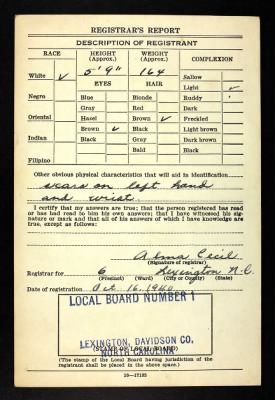 REGISTRAR'S REPORT
DESCRIPTION OF REGISTRANT
RACE
HEIGHT (Approx.)
WEIGHT (Approx.)
COMPLEXION
White ✓
5' 9"
164
Sallow
EYES
HAIR
Light ✓
Negro
Blue
Blonde
Ruddy
Gray
Red
Dark
Oriental
Hazel
Brown ✓
Freckled
Brown ✓
Black
Light brown
Indian
Black
Gray
Dark brown
Bald
Black
Filipino
Other obvious physical characteristics that will aid in identification
scars on left hand
and wrist
I certify that my answers are true; that the person registered has read
or has had read to him his own answers; that I have witnessed his sig-
nature or mark and that all of his answers of which I have knowledge are
true, except as follows:
Alma Cecil
(Signature of registrar)
Registrar for 6 Lexington N.C.
(Precinct) (Ward) (City or County) (State)
Date of registration Oct. 16, 1940
LOCAL BOARD NUMBER 1
LEXINGTON, DAVIDSON CO.
NORTH CAROLINA
(STAMP OF LOCAL BOARD)
(The stamp of the Local Board having jurisdiction of the
registrant shall be placed in the above space.)